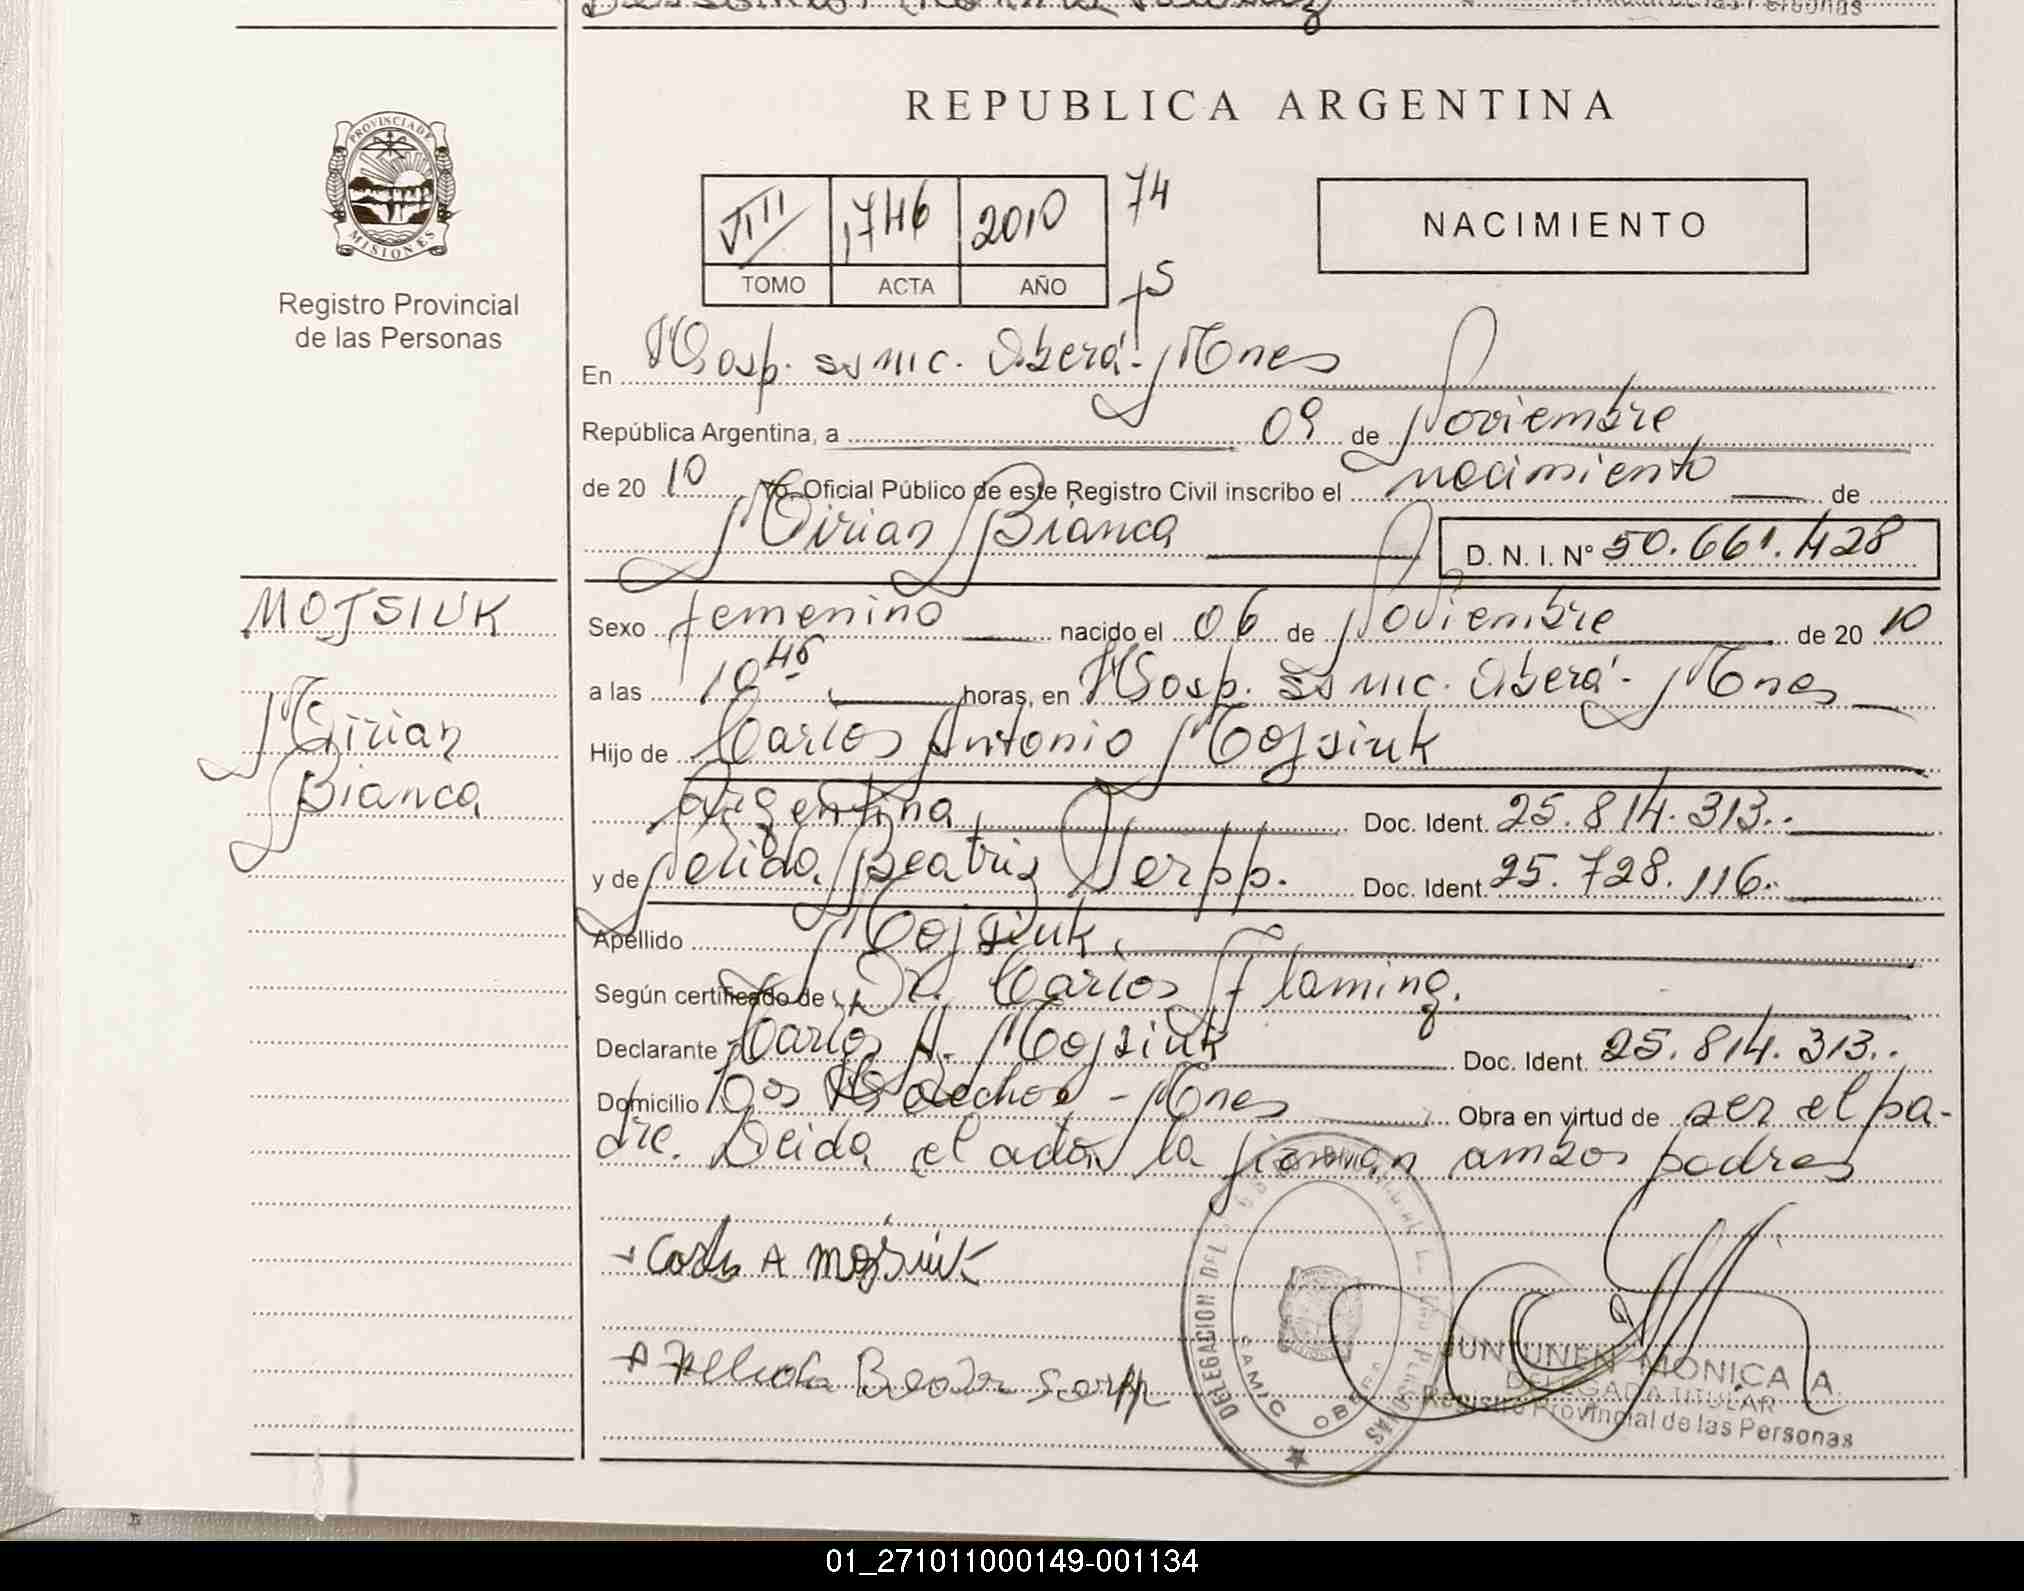 REPUBLICA ARGENTINA
PROVINCIA DE
MISIONES
Registro Provincial
de las Personas
VIII 1746 2010 74
TOMO ACTA AÑO 75
NACIMIENTO
En Hosp. SAMIC. Oberá - Mnes
República Argentina, a 09 de Noviembre
de 20 10 Yo, Oficial Público de este Registro Civil inscribo el nacimiento de
Mirian Bianca D. N. I. Nº 50.661.428
MOJSIUK
Mirian
Bianca
Sexo femenino nacido el 06 de Noviembre de 20 10
a las 10 45 horas, en Hosp. SAMIC. Oberá - Mnes
Hijo de Carlos Antonio Mojsiuk
Argentina Doc. Ident. 25.814.313..
y de Nelida Beatriz Serpp. Doc. Ident. 25.728.116.
Apellido Mojsiuk.
Según certificado de Dr. Carlos Flaming.
Declarante Carlos A. Mojsiuk Doc. Ident. 25.814.313..
Domicilio Dos - Mnes Obra en virtud de ser el pa-
dre. Leida el acta, la firman ambos padres
Carlos A Mojsiuk
Beatriz Serpp
DELEGACION DEL
SAMIC OBERA
JUNTUNEN MONICA A.
DELEGADA TITULAR
Registro Provincial de las Personas
01_271011000149-001134